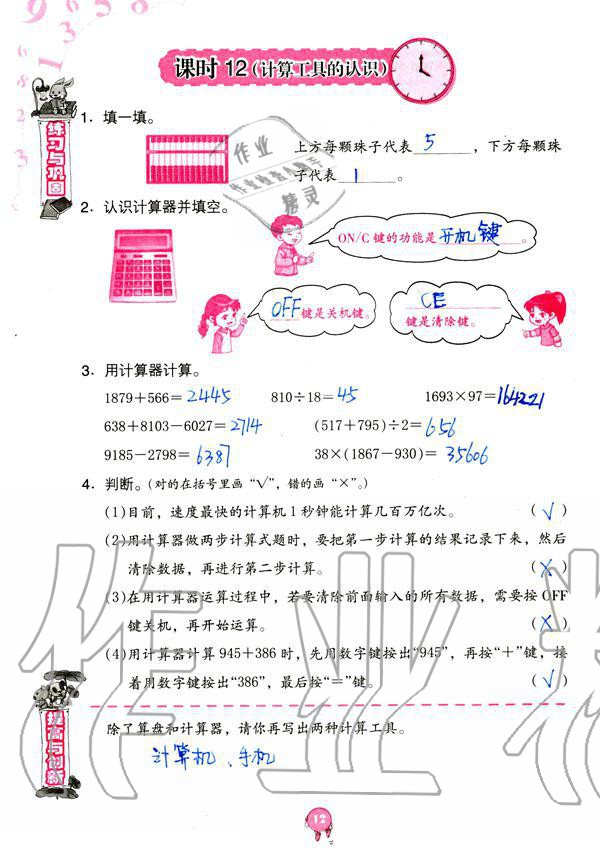 课时 12(计算工具的认识)
练习与巩固
1. 填一填。
上方每颗珠子代表 5 ，下方每颗珠
子代表 1 。
作业
精灵
2. 认识计算器并填空。
ON/C 键的功能是 开机键 。
OFF 键是关机键。
CE
键是清除键。
3. 用计算器计算。
1879+566= 2445 810÷18= 45 1693×97= 164221
638+8103-6027= 2714 (517+795)÷2= 656
9185-2798= 6387 38×(1867-930)= 35606
4. 判断。(对的在括号里画“√”，错的画“×”。)
(1)目前，速度最快的计算机1秒钟能计算几百万亿次。 (√)
(2)用计算器做两步计算式题时，要把第一步计算的结果记录下来，然后
清除数据，再进行第二步计算。 (×)
(3)在用计算器运算过程中，若要清除前面输入的所有数据，需要按 OFF
键关机，再开始运算。 (×)
(4)用计算器计算 945+386 时，先用数字键按出“945”，再按“+”键，接
着用数字键按出“386”，最后按“=”键。 (√)
提高与创新
除了算盘和计算器，请你再写出两种计算工具。
计算机、手机
作业精
12